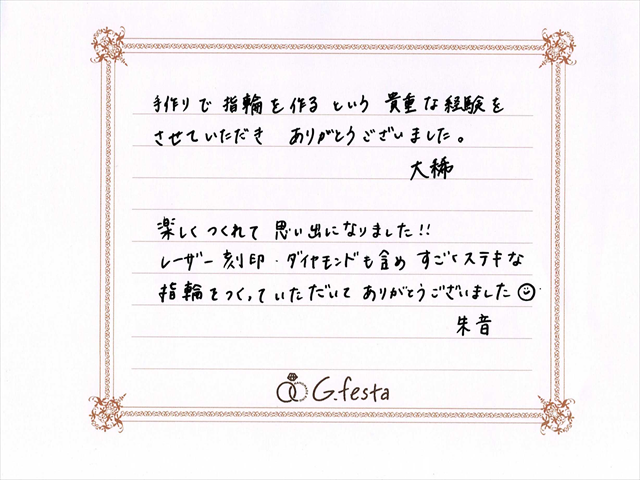 手作りで 指輪を作る という 貴重な経験を
させていただき ありがとうございました。
大稀
楽しくつくれて 思い出になりました!!
レーザー刻印・ダイヤモンドも含め すごくステキな
指輪をつくっていただいて ありがとうございました☺
朱音
G.festa